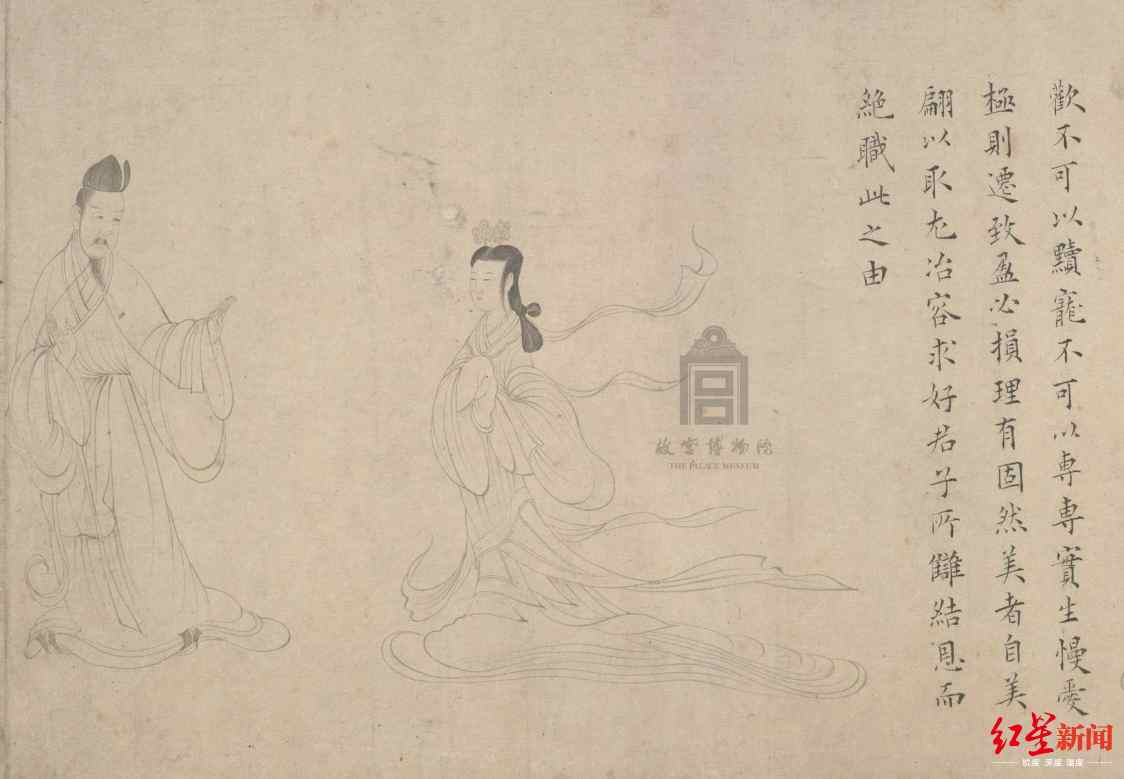 歡不可以黷寵不可以專專實生慢愛
極則遷致盈必損理有固然美者自美
翩以取尤冶容求好君子所讎結恩而
絶職此之由
故宫博物院
THE PALACE MUSEUM
红星新闻
深度 温度